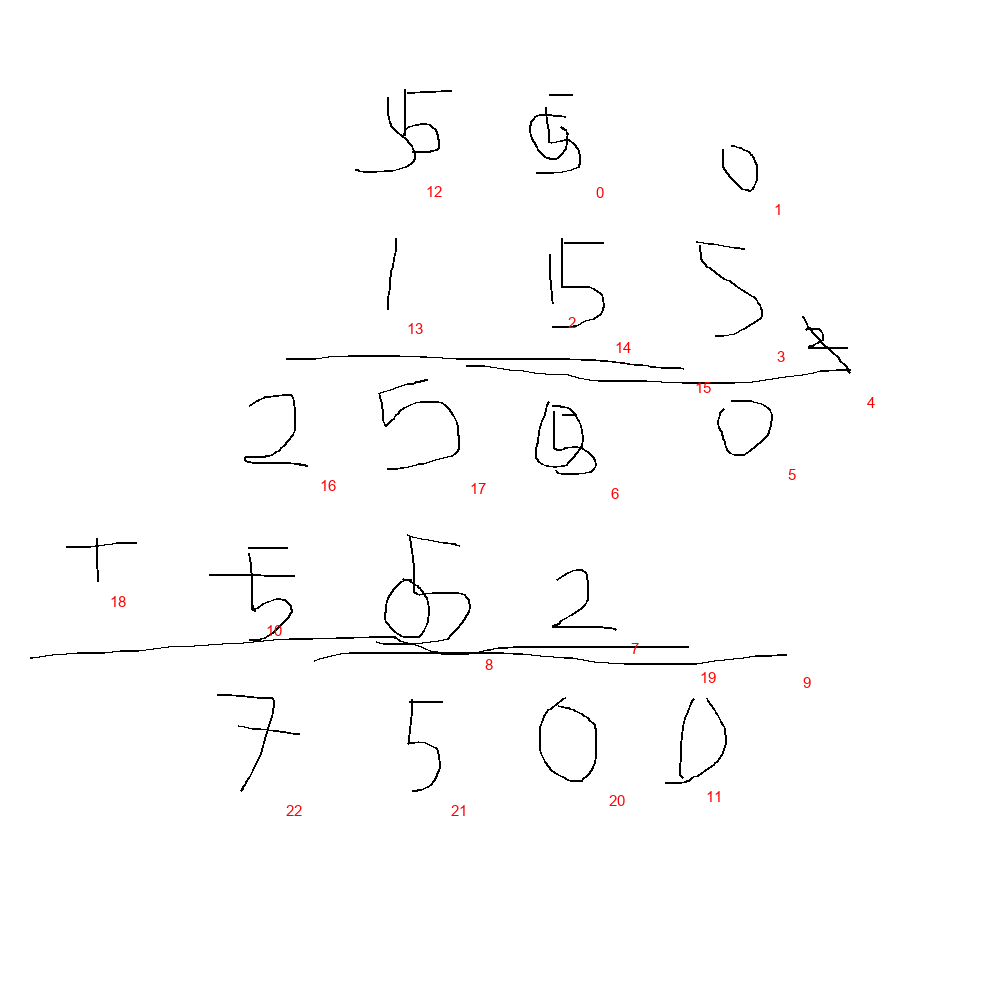 5 5 0
12 0 1
1 5 5
13 2 14 3
15 4
2 5 0 0
16 17 6 5
+ 5 0 2
18 10 7
8 19 9
7 5 0 0
22 21 20 11